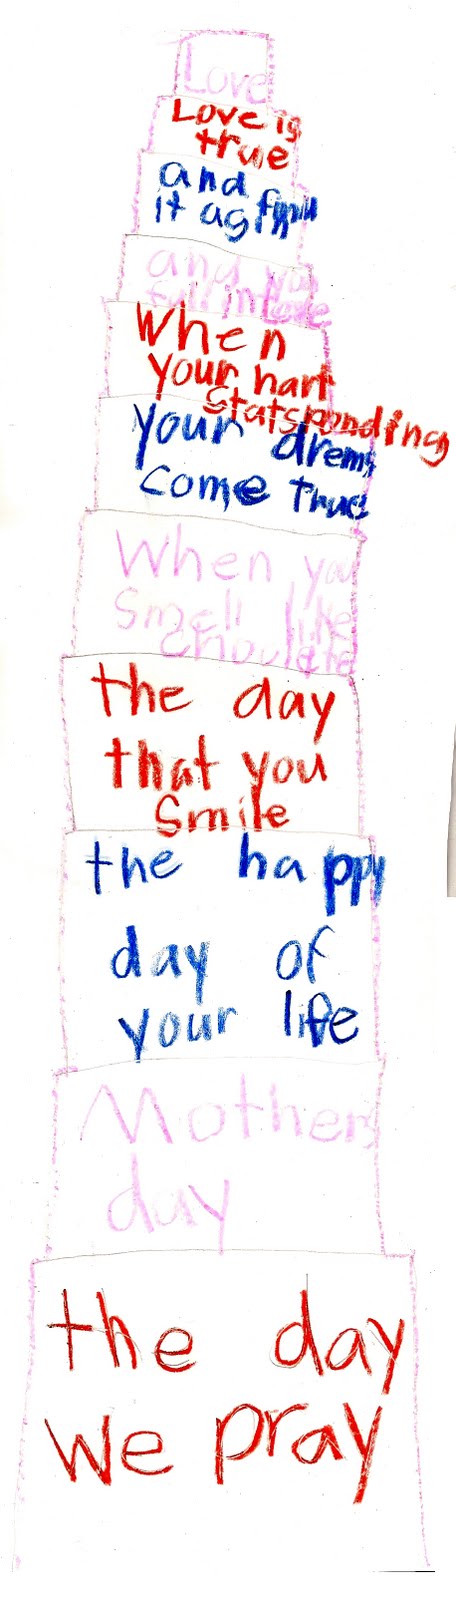 Love
Love is
true
and
it ag
and you
fall in love
When
your hart
Statsponding
your drems
come true
When you
Smell like
the day
that you
Smile
the happy
day of
your life
Mothers
day
the day
We pray